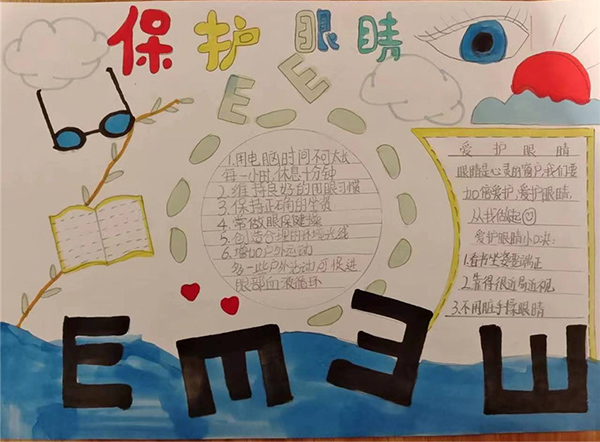 保护眼睛
E E
1.用电脑时间不可太长
每一小时,休息十分钟
2.维持良好的用眼习惯
3.保持正确的坐姿
4.常做眼保健操
5.创造合理的环境光线
6.增加户外运动
多一些户外活动,可促进
眼部血液循环
爱护眼睛
眼睛是心灵的窗户,我们要
加倍爱护,爱护眼睛,
从我做起
爱护眼睛小口诀:
1.看书坐姿要端正
2.靠得很近易近视
3.不用脏手揉眼睛
E m Ǝ Ш